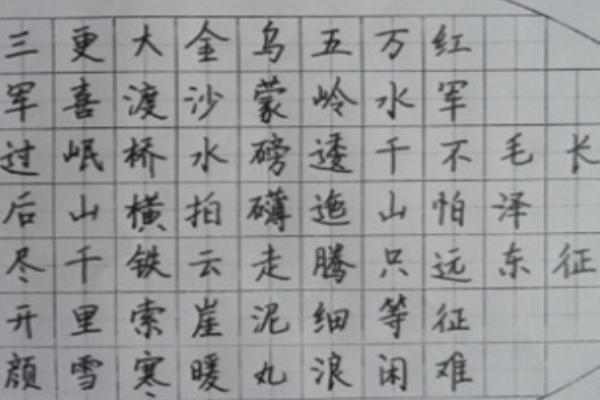 长征
毛泽东
红军不怕远征难
万水千山只等闲
五岭逶迤腾细浪
乌蒙磅礴走泥丸
金沙水拍云崖暖
大渡桥横铁索寒
更喜岷山千里雪
三军过后尽开颜